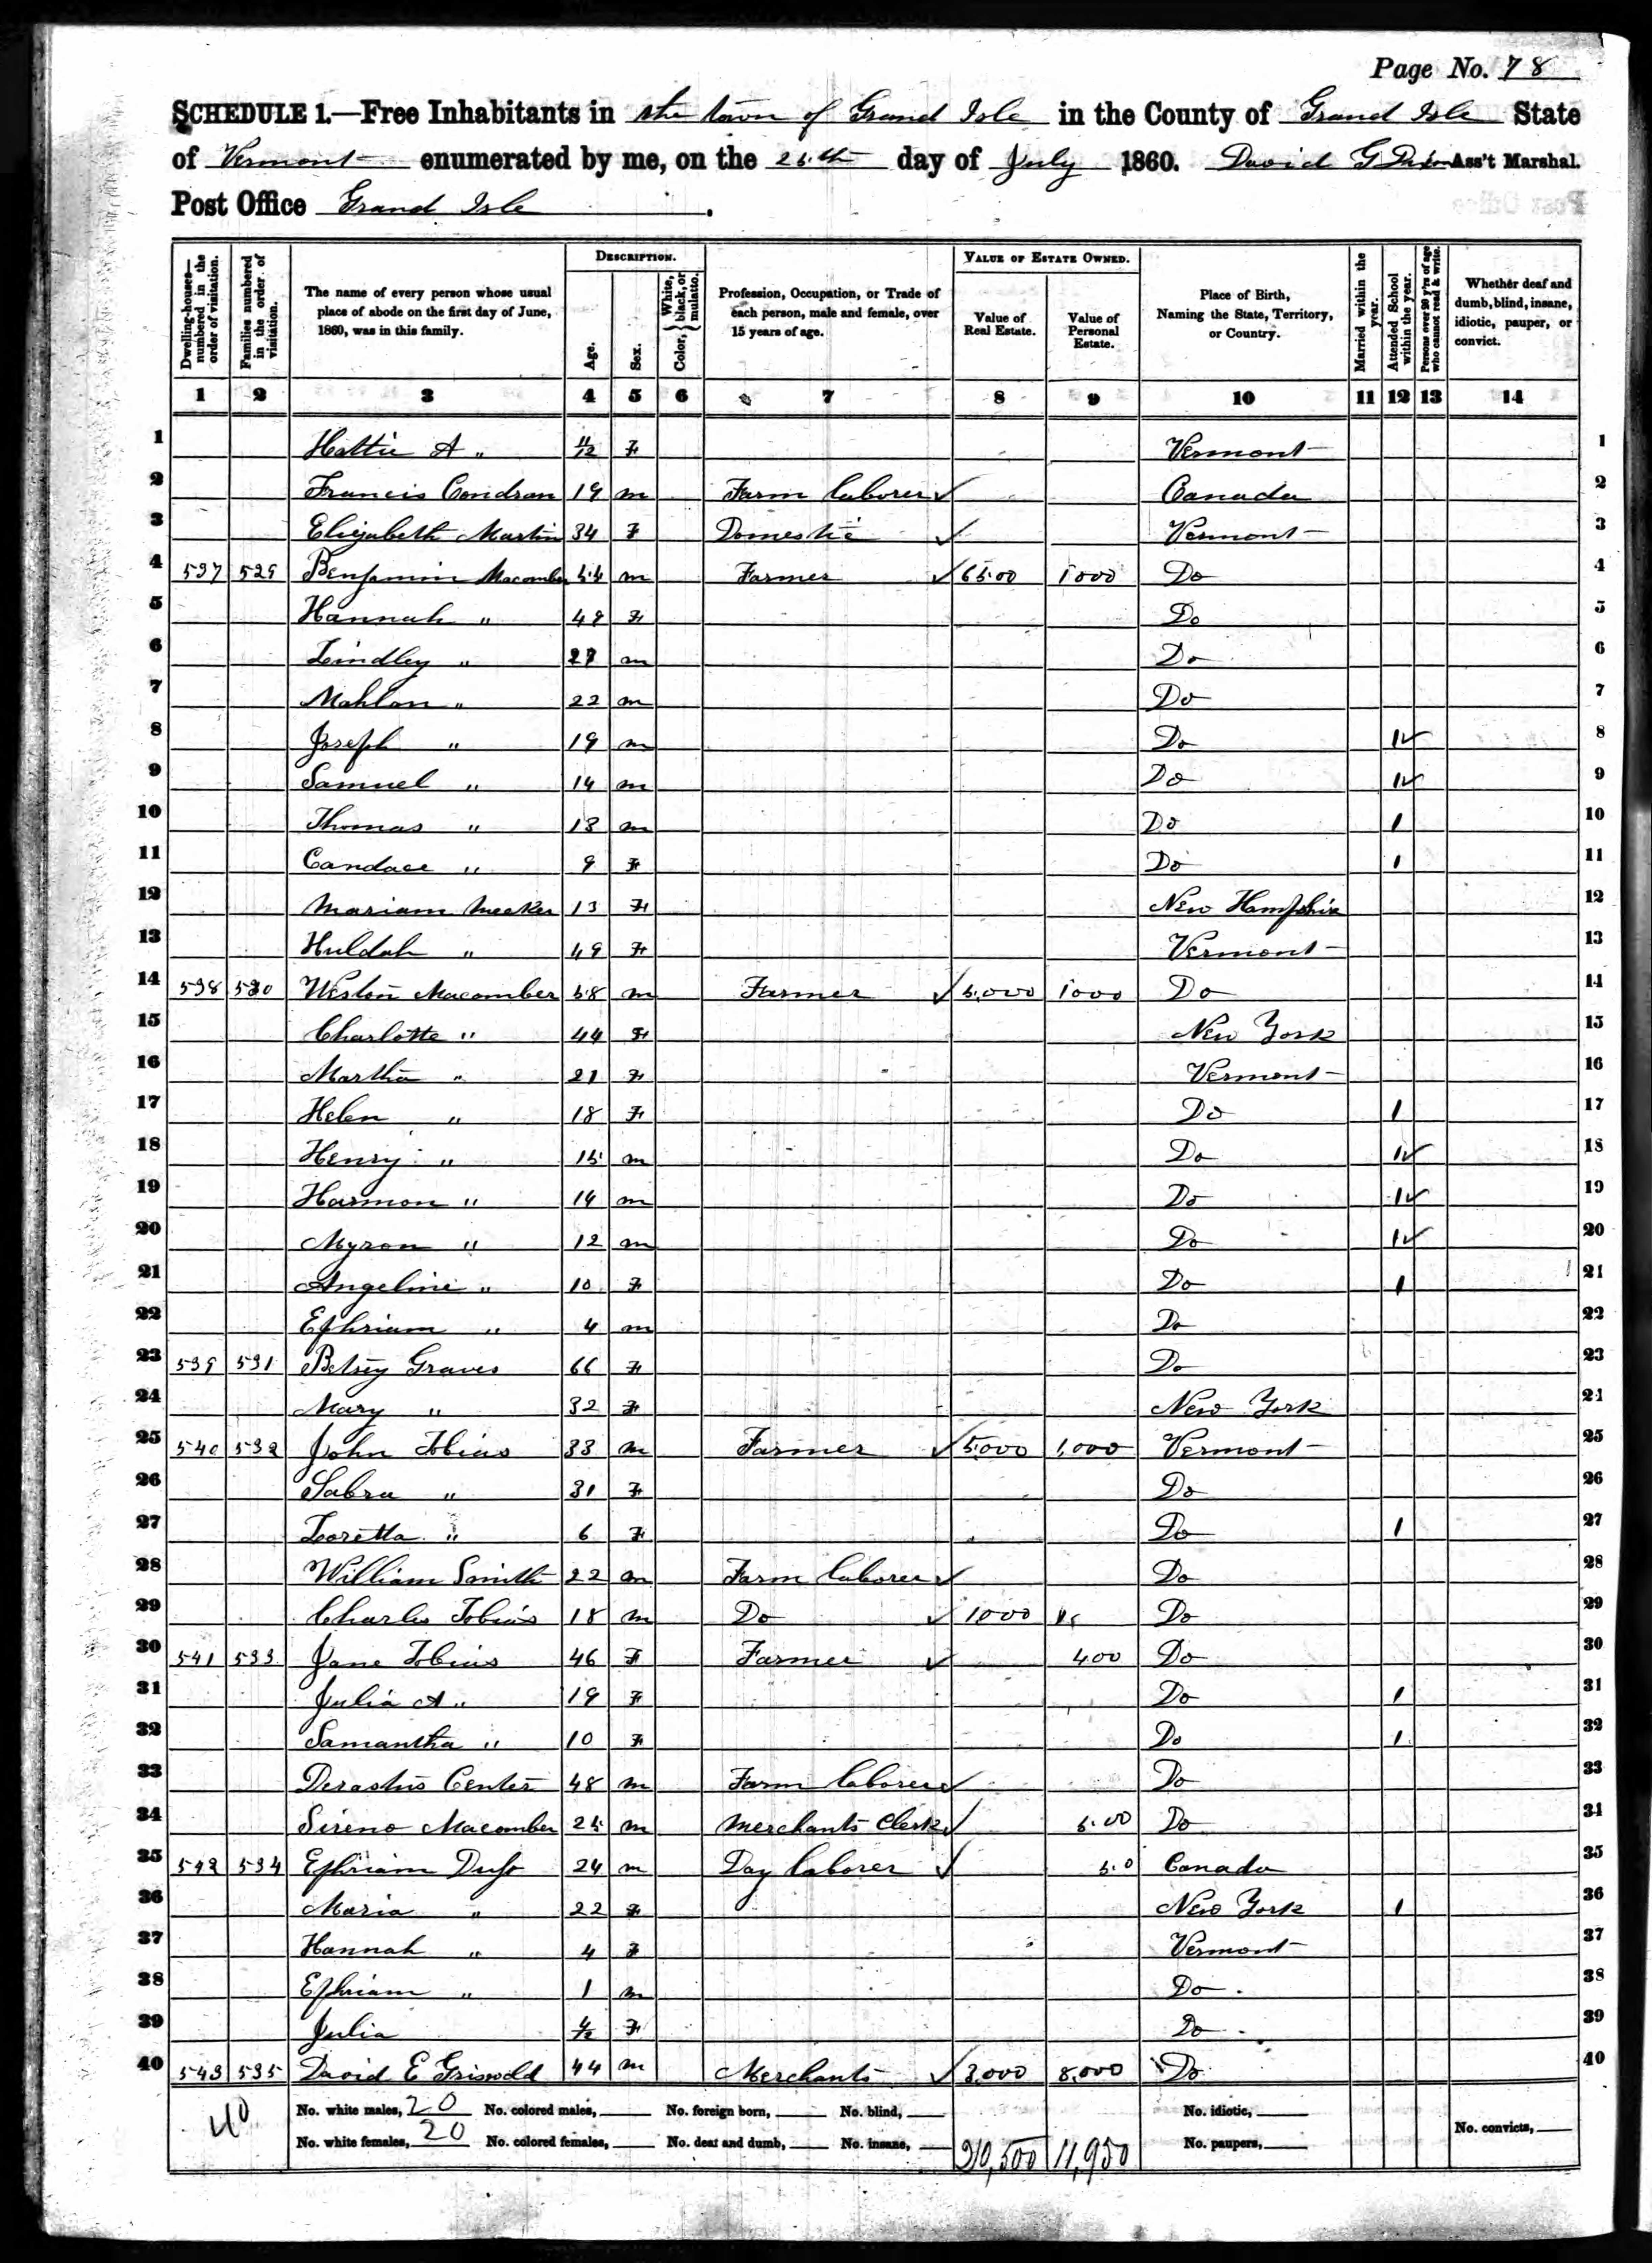 Page No. 78
SCHEDULE 1.—Free Inhabitants in the town of Grand Isle in the County of Grand Isle State
of Vermont enumerated by me, on the 26th day of July 1860. David G Ass't Marshal.
Post Office Grand Isle.
Dwelling-houses—numbered in the order of visitation.
Families numbered in the order of visitation.
The name of every person whose usual place of abode on the first day of June, 1860, was in this family.
DESCRIPTION.
Age.
Sex.
Color, White, black, or mulatto.
Profession, Occupation, or Trade of each person, male and female, over 15 years of age.
VALUE OF ESTATE OWNED.
Value of Real Estate.
Value of Personal Estate.
Place of Birth, Naming the State, Territory, or Country.
Married within the year.
Attended School within the year.
Persons over 20 y'rs of age who cannot read & write.
Whether deaf and dumb, blind, insane, idiotic, pauper, or convict.
1 2 3 4 5 6 7 8 9 10 11 12 13 14
1 Hattie A " 11/12 F Vermont 1
2 Francis Condran 19 m Farm laborer ✓ Canada 2
3 Elizabeth Martin 34 F Domestic ✓ Vermont 3
4 537 529 Benjamin Macomber 54 m Farmer ✓ 6500 1000 Do 4
5 Hannah " 49 F Do 5
6 Lindley " 27 m Do 6
7 Mahlon " 22 m Do 7
8 Joseph " 19 m Do 1✓ 8
9 Samuel " 14 m Do 1✓ 9
10 Thomas " 13 m Do 1 10
11 Candace " 9 F Do 1 11
12 Mariam Meeker 13 F New Hampshire 12
13 Huldah " 49 F Vermont 13
14 538 530 Weston Macomber 58 m Farmer ✓ 5,000 1000 Do 14
15 Charlotte " 44 F New York 15
16 Martha " 21 F Vermont 16
17 Helen " 18 F Do 1 17
18 Henry " 15 m Do 1✓ 18
19 Harmon " 14 m Do 1✓ 19
20 Myron " 12 m Do 1✓ 20
21 Angeline " 10 F Do 1 21
22 Ephriam " 4 m Do 22
23 539 531 Betsey Graves 66 F Do 23
24 Mary " 32 F New York 24
25 540 532 John Tobias 33 m Farmer ✓ 5000 1,000 Vermont 25
26 Sabra " 31 F Do 26
27 Loretta " 6 F Do 1 27
28 William Smith 22 m Farm laborer ✓ Do 28
29 Charles Tobias 18 m Do ✓ 1000 Do 29
30 541 533 Jane Tobias 46 F Farmer ✓ 400 Do 30
31 Julia A " 19 F Do 1 31
32 Samantha " 10 F Do 1 32
33 Derastus Center 48 m Farm laborer ✓ Do 33
34 Sireno Macomber 25 m Merchants Clerk ✓ 500 Do 34
35 542 534 Ephriam 24 m Day laborer ✓ 50 Canada 35
36 Maria " 22 F New York 1 36
37 Hannah " 4 F Vermont 37
38 Ephriam " 1 m Do 38
39 Julia F Do 39
40 543 535 David E Griswold 44 m Merchants ✓ 3,000 8,000 Do 40
40 No. white males, 20 No. colored males, No. foreign born, No. blind, No. idiotic,
No. white females, 20 No. colored females, No. deaf and dumb, No. insane, 20,500 11,950 No. paupers, No. convicts,